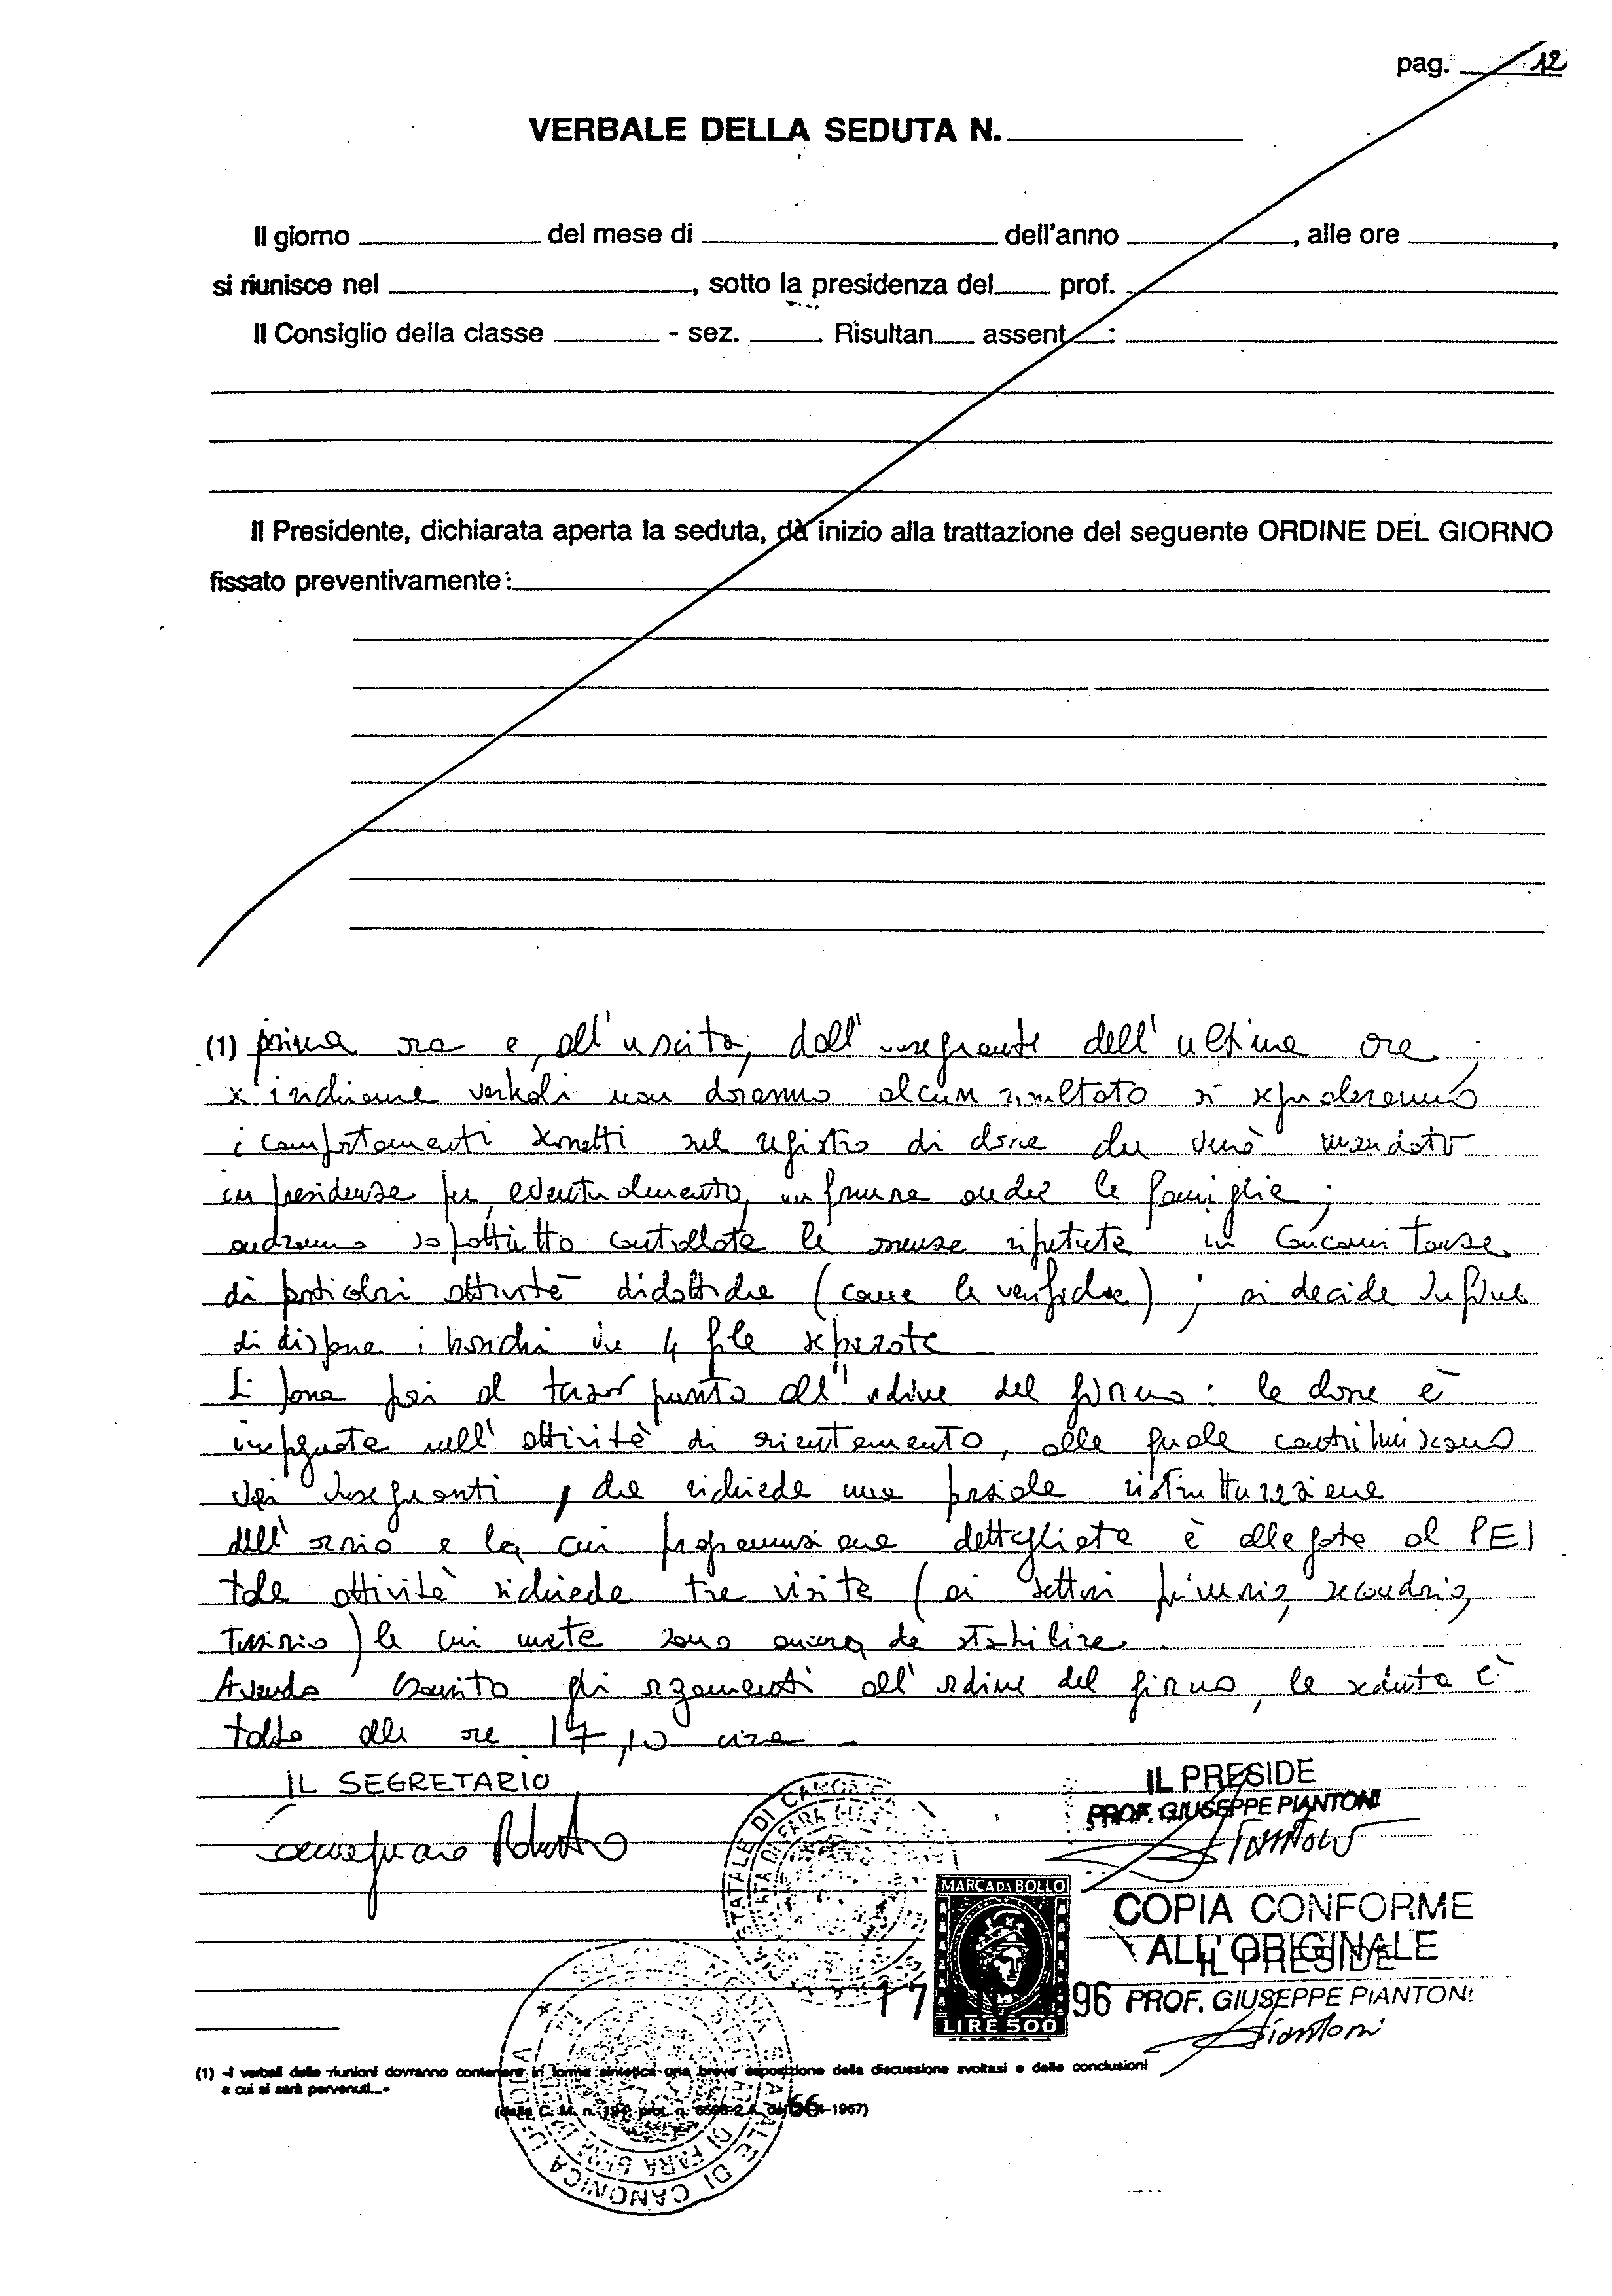 pag. 12
VERBALE DELLA SEDUTA N.
Il giorno del mese di dell'anno , alle ore ,
si riunisce nel , sotto la presidenza del prof.
Il Consiglio della classe - sez. . Risultan assent :
Il Presidente, dichiarata aperta la seduta, dà inizio alla trattazione del seguente ORDINE DEL GIORNO
fissato preventivamente:
(1) prima ora e, all'uscita, dall'insegnante dell'ultima ora;
se i richiami verbali non daranno alcun risultato si segnaleranno
i comportamenti scorretti sul registro di classe che verrà mandato
in presidenza per, eventualmente, informare anche le famiglie;
andranno soprattutto controllate le assenze ripetute in concomitanza
di particolari attività didattiche (come le verifiche); si decide infine
di disporre i banchi in 4 file separate
Si passa poi al terzo punto all'ordine del giorno: la classe è
impegnata nell'attività di orientamento, alla quale contribuiscono
vari insegnanti, che richiede una parziale ristrutturazione
dell'orario e la cui programmazione dettagliata è allegata al PEI
tale attività richiede tre visite (ai settori primario, secondario,
terziario) le cui mete sono ancora da stabilire.
Avendo esaurito gli argomenti all'ordine del giorno, la seduta è
tolta alle ore 17,10 circa
IL SEGRETARIO
IL PRESIDE
PROF. GIUSEPPE PIANTONI
Piantoni
MARCA DA BOLLO
LIRE 500
COPIA CONFORME
ALL'ORIGINALE
IL PRESIDE
17 96 PROF. GIUSEPPE PIANTONI
Piantoni
(1) «I verbali delle riunioni dovranno contenere in forma sintetica una breve esposizione della discussione svoltasi e delle conclusioni
a cui si sarà pervenuti...»
(dalla C. M. n. prot. n. -1967)
66
STATALE DI CANONICA
DI FARA GERA